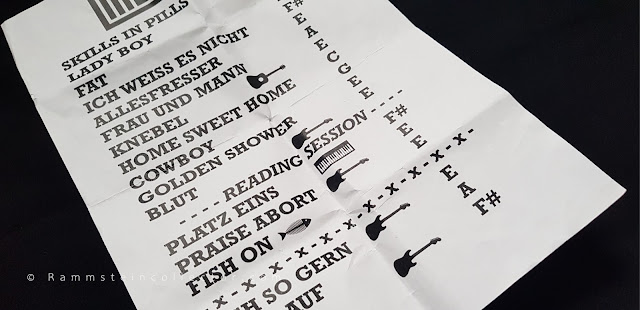 SKILLS IN PILLS
LADY BOY
FAT
ICH WEISS ES NICHT F#
ALLESFRESSER E
FRAU UND MANN A
KNEBEL E
HOME SWEET HOME C
COWBOY G
GOLDEN SHOWER E
BLUT E
- - - - - READING SESSION - - - -
PLATZ EINS F#
PRAISE ABORT E
FISH ON E
-x-x-x-x-x-x-x-x-x-x-x-x-
H SO GERN E
AUF A
F#
© Rammsteincol